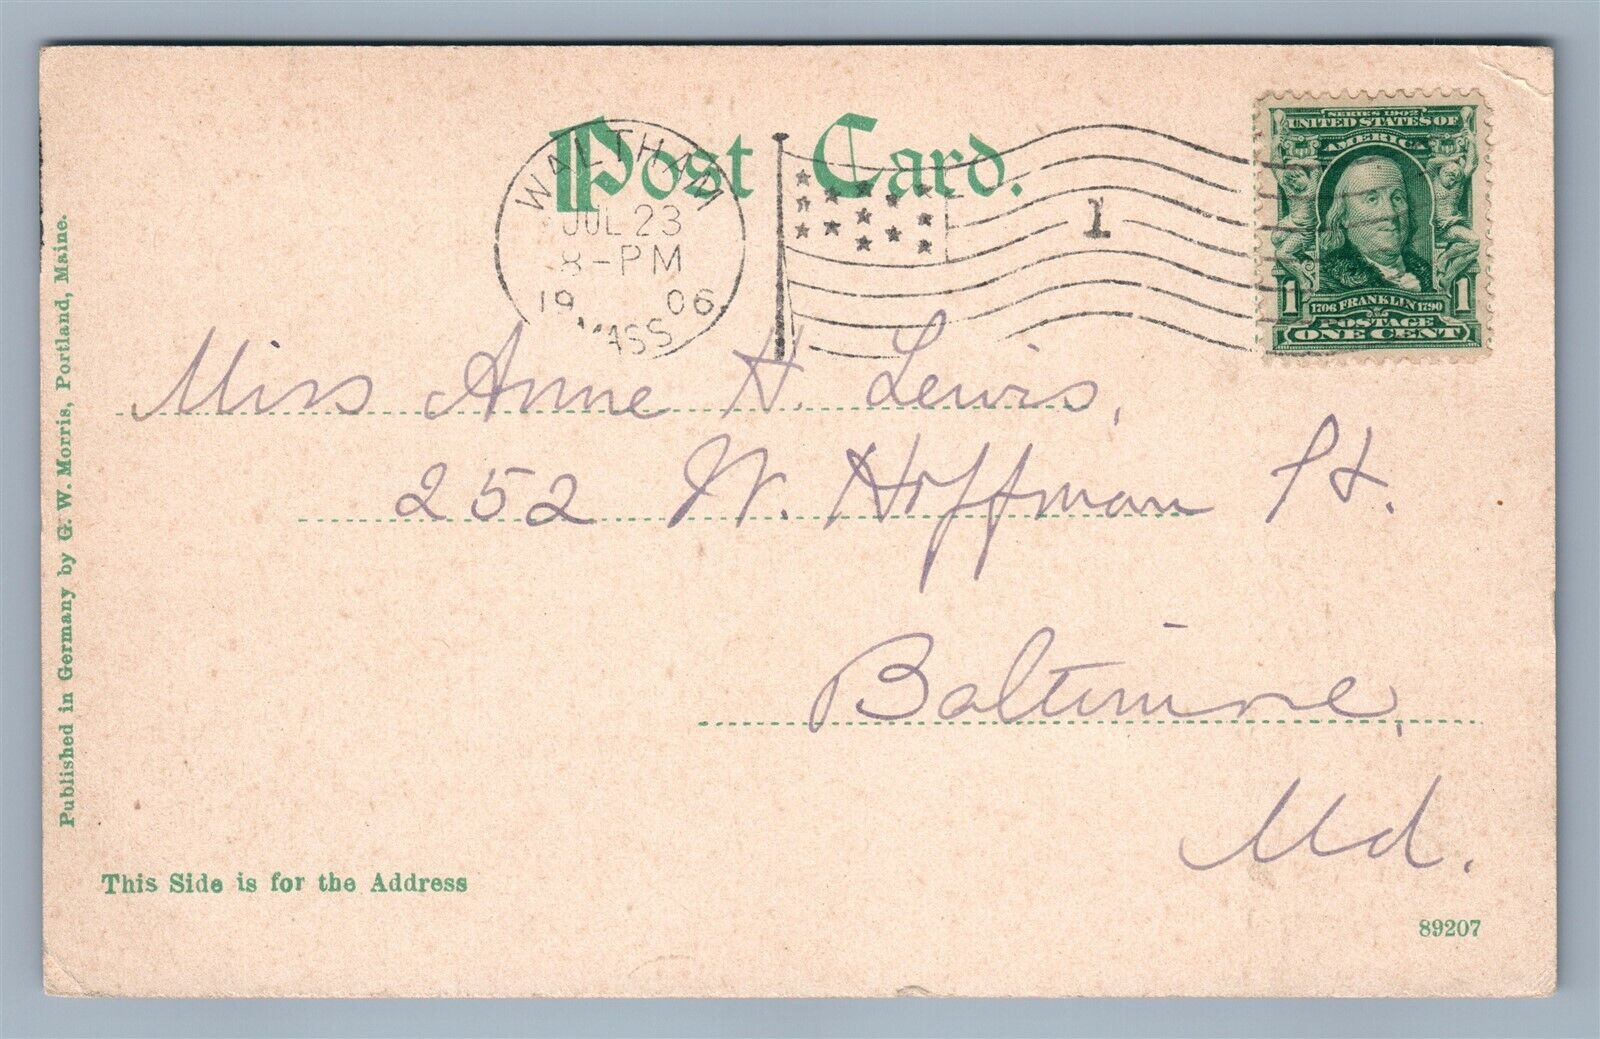 Post Card.
WALTHAM
JUL 23
8-PM
1906
MASS
1
SERIES 1902
UNITED STATES OF
AMERICA
1706 FRANKLIN 1790
1 1
POSTAGE
ONE CENT
Miss Anne H. Lewis,
252 W. Hoffman St.
Baltimore,
Md.
Published in Germany by G. W. Morris, Portland, Maine.
This Side is for the Address
89207